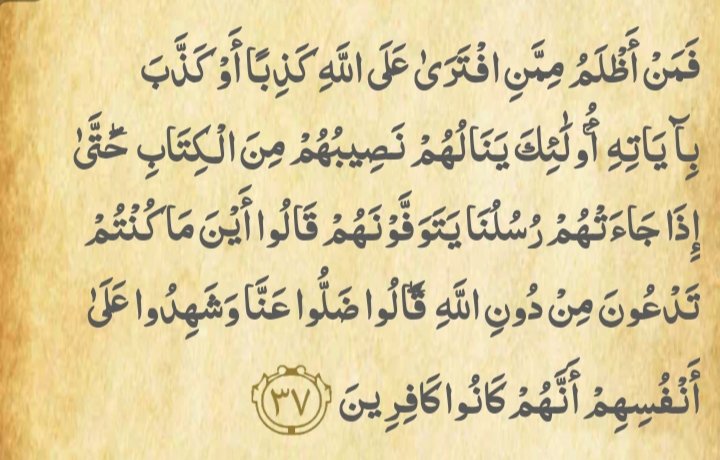 فَمَنْ أَظْلَمُ مِمَّنِ افْتَرَىٰ عَلَى اللَّهِ كَذِبًا أَوْ كَذَّبَ
بِآيَاتِهِ ۚ أُولَٰئِكَ يَنَالُهُمْ نَصِيبُهُمْ مِنَ الْكِتَابِ ۖ حَتَّىٰ
إِذَا جَاءَتْهُمْ رُسُلُنَا يَتَوَفَّوْنَهُمْ قَالُوا أَيْنَ مَا كُنْتُمْ
تَدْعُونَ مِنْ دُونِ اللَّهِ ۖ قَالُوا ضَلُّوا عَنَّا وَشَهِدُوا عَلَىٰ
أَنْفُسِهِمْ أَنَّهُمْ كَانُوا كَافِرِينَ ٣٧